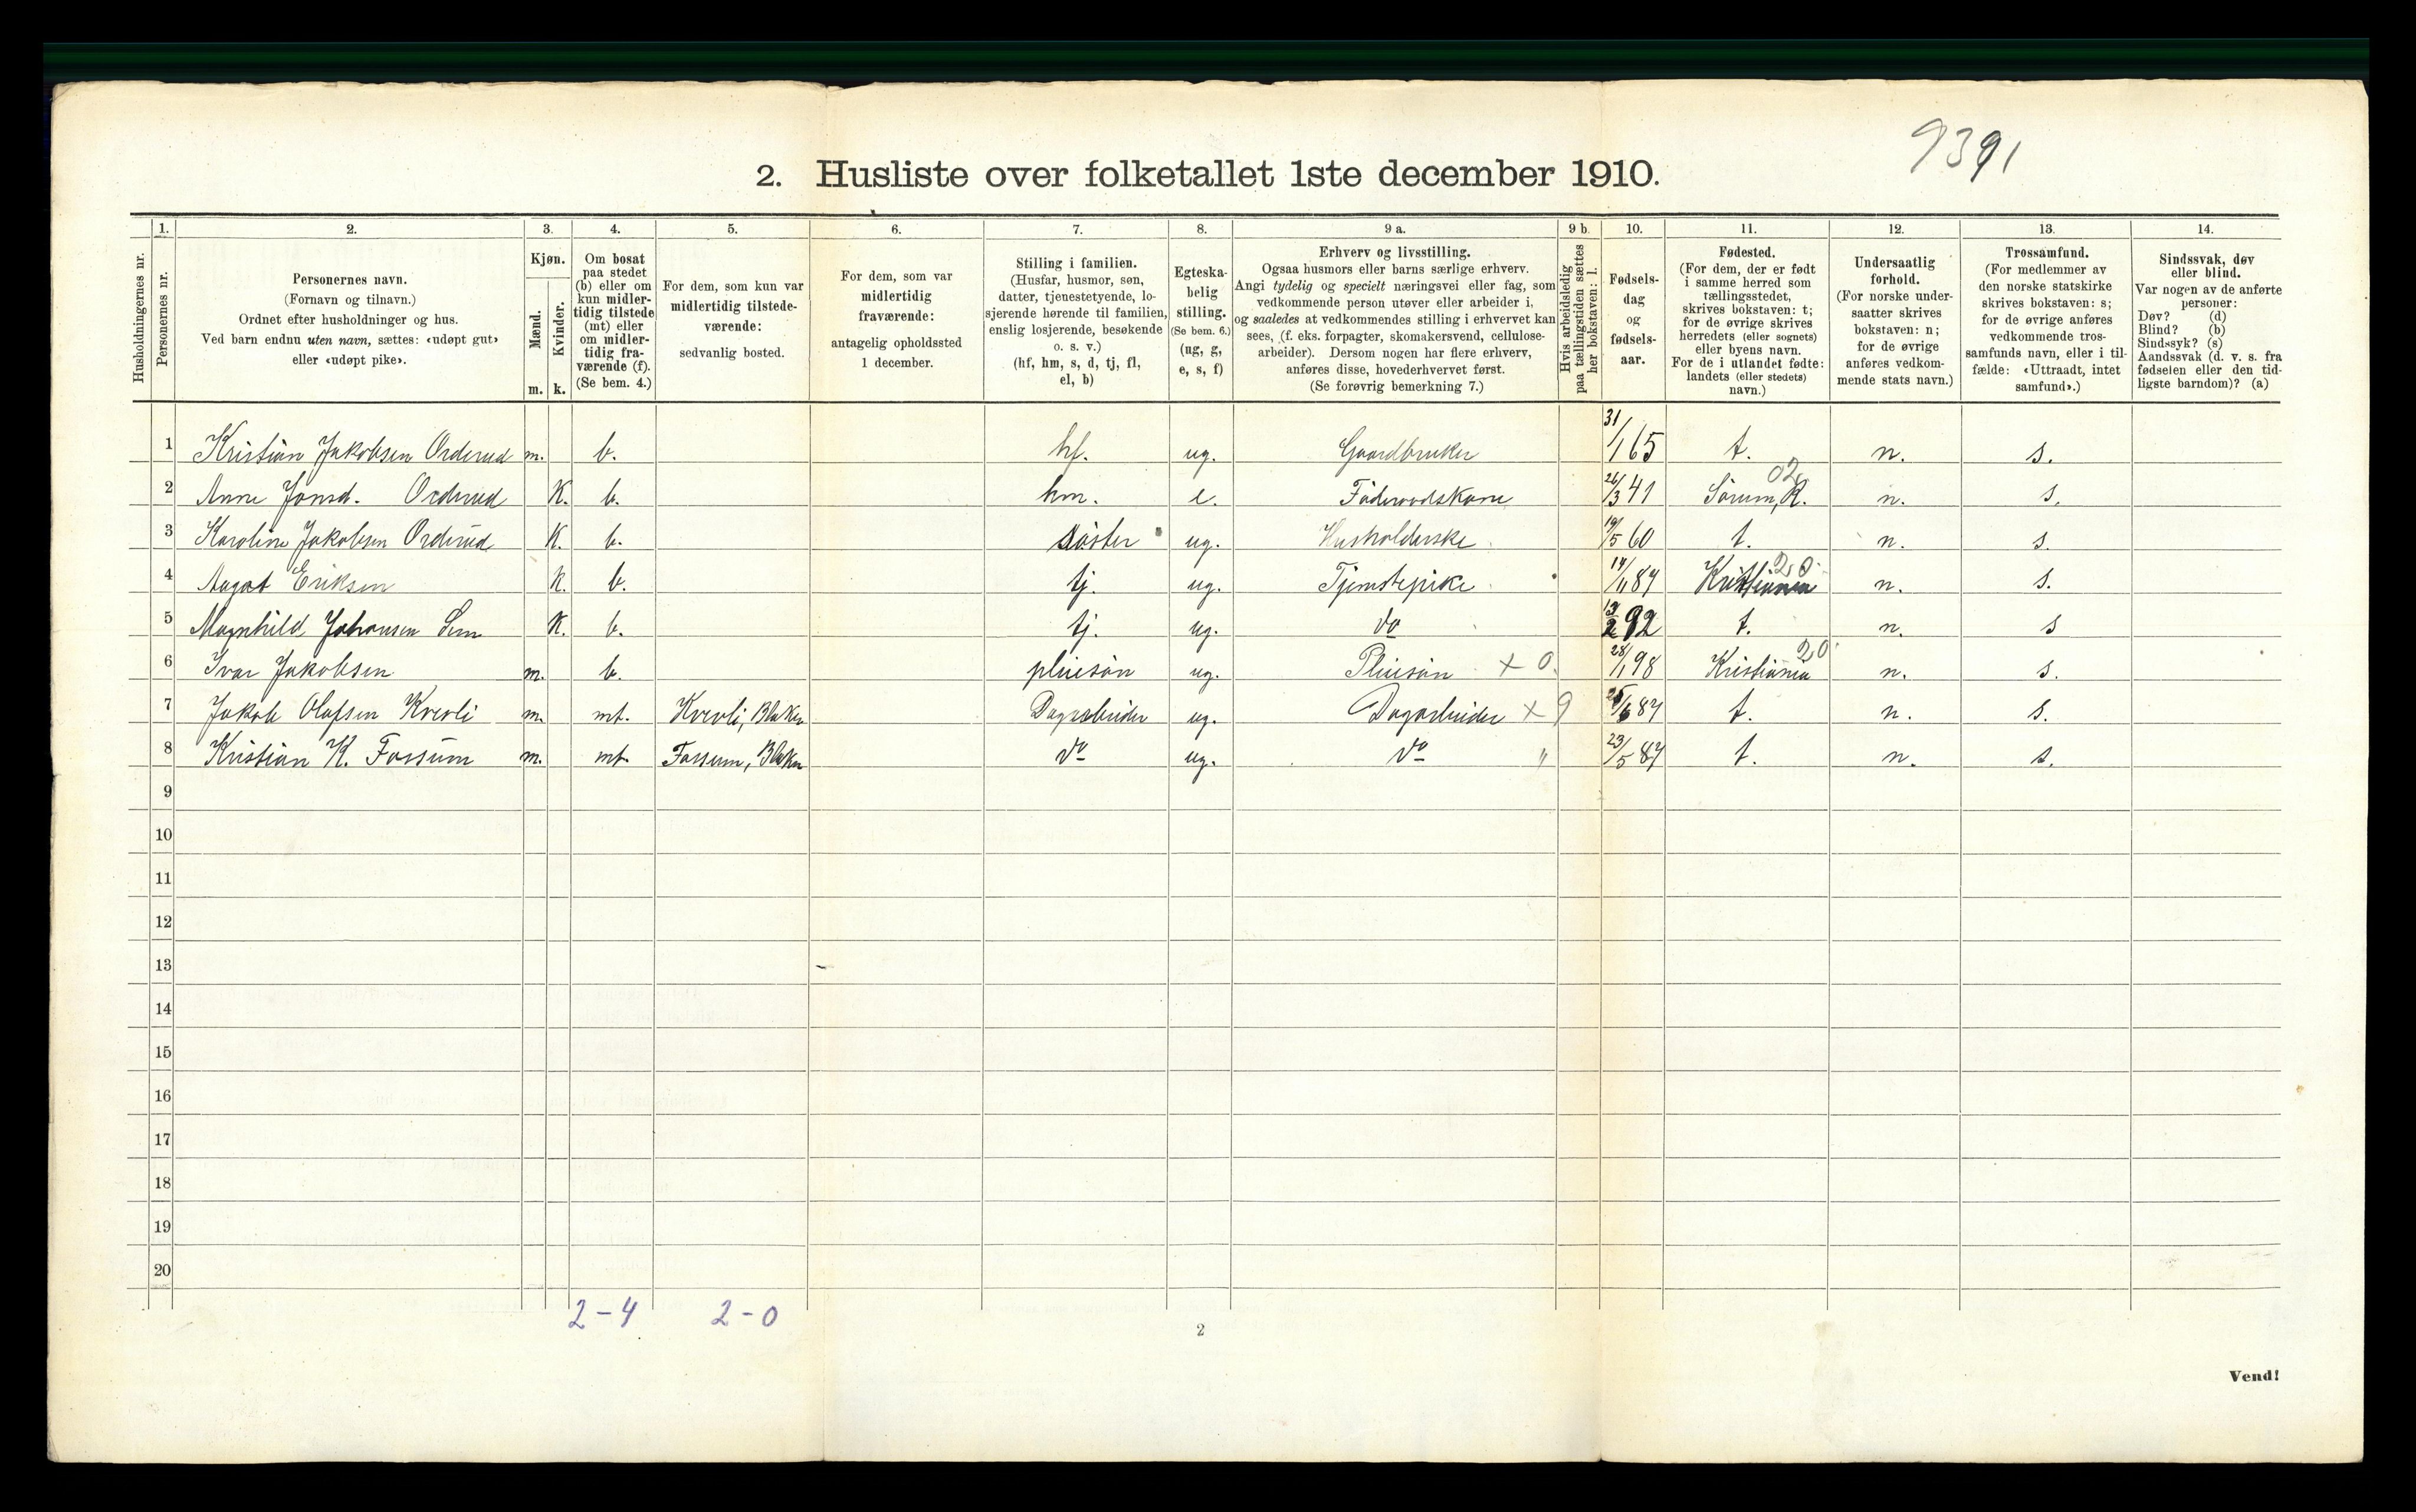 9391
2. Husliste over folketallet 1ste december 1910.
Husholdningernes nr.
1. Personernes nr.
2. Personernes navn. (Fornavn og tilnavn.) Ordnet efter husholdninger og hus. Ved barn endnu uten navn, sættes: «udøpt gut» eller «udøpt pike».
3. Kjøn. Mænd. m. Kvinder. k.
4. Om bosat paa stedet (b) eller om kun midlertidig tilstede (mt) eller om midlertidig fraværende (f). (Se bem. 4.)
5. For dem, som kun var midlertidig tilstedeværende: sedvanlig bosted.
6. For dem, som var midlertidig fraværende: antagelig opholdssted 1 december.
7. Stilling i familien. (Husfar, husmor, søn, datter, tjenestetyende, losjerende hørende til familien, enslig losjerende, besøkende o. s. v.) (hf, hm, s, d, tj, fl, el, b)
8. Egteskabelig stilling. (Se bem. 6.) (ug, g, e, s, f)
9 a. Erhverv og livsstilling. Ogsaa husmors eller barns særlige erhverv. Angi tydelig og specielt næringsvei eller fag, som vedkommende person utøver eller arbeider i, og saaledes at vedkommendes stilling i erhvervet kan sees, (f. eks. forpagter, skomakersvend, cellulosearbeider). Dersom nogen har flere erhverv, anføres disse, hovederhvervet først. (Se forøvrig bemerkning 7.)
9 b. Hvis arbeidsledig paa tællingstiden sættes her bokstaven: l.
10. Fødselsdag og fødselsaar.
11. Fødested. (For dem, der er født i samme herred som tællingsstedet, skrives bokstaven: t; for de øvrige skrives herredets (eller sognets) eller byens navn. For de i utlandet fødte: landets (eller stedets) navn.)
12. Undersaatlig forhold. (For norske undersaatter skrives bokstaven: n; for de øvrige anføres vedkommende stats navn.)
13. Trossamfund. (For medlemmer av den norske statskirke skrives bokstaven: s; for de øvrige anføres vedkommende trossamfunds navn, eller i tilfælde: «Uttraadt, intet samfund».)
14. Sindssvak, døv eller blind. Var nogen av de anførte personer: Døv? (d) Blind? (b) Sindssyk? (s) Aandssvak (d. v. s. fra fødselen eller den tidligste barndom)? (a)
1 Kristian Jakobsen Orderud m. b. hf. ug. Gaardbruker 31/1 65 t. n. s.
2 Anne Jonsd. Orderud K. b. hm. e. Föderaadskone 26/3 41 Sörum, R. 02 n. s.
3 Karoline Jakobsen Orderud K. b. söster ug. Husholderske 19/5 60 t. n. s.
4 Aagot Eriksen K. b. tj. ug. Tjenstepike 14/11 87 Kristiania 20 n. s.
5 Magnhild Johansen K. b. tj. ug. do 92 t. n. s
6 Ivar Jakobsen m. b. pleiesön ug. Pleiesön x 0 28/1 98 Kristiania 20 n. s.
7 Jakob Olafsen Kverli m. mt. Kverli, Blaker Dagarbeider ug. Dagarbeider x 9 87 t. n. s.
8 Kristian K. Fossum m. mt. Fossum, Blaker do ug. do " 23/5 87 t. n. s.
9
10
11
12
13
14
15
16
17
18
19
20
2-4 2-0
2
Vend!